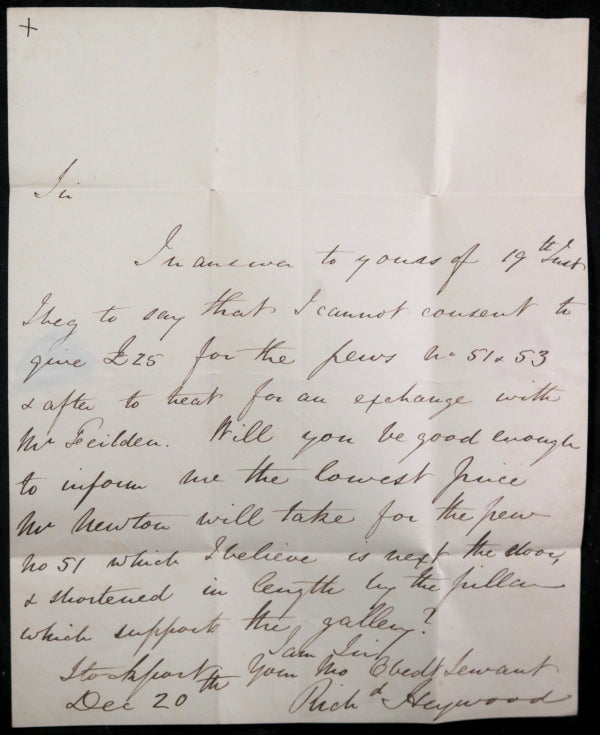 +
Sir
In answer to yours of 19th Inst
I beg to say that I cannot consent to
give £25 for the pews no 51 & 53
& after to treat for an exchange with
Mr Feilden. Will you be good enough
to inform me the lowest price
Mr Newton will take for the pew
no 51 which I believe is next the door,
& shortened in length by the pillar
which supports the gallery?
I am Sir
Stockport Your Mo Obedt Servant
Dec 20th Richd Heywood